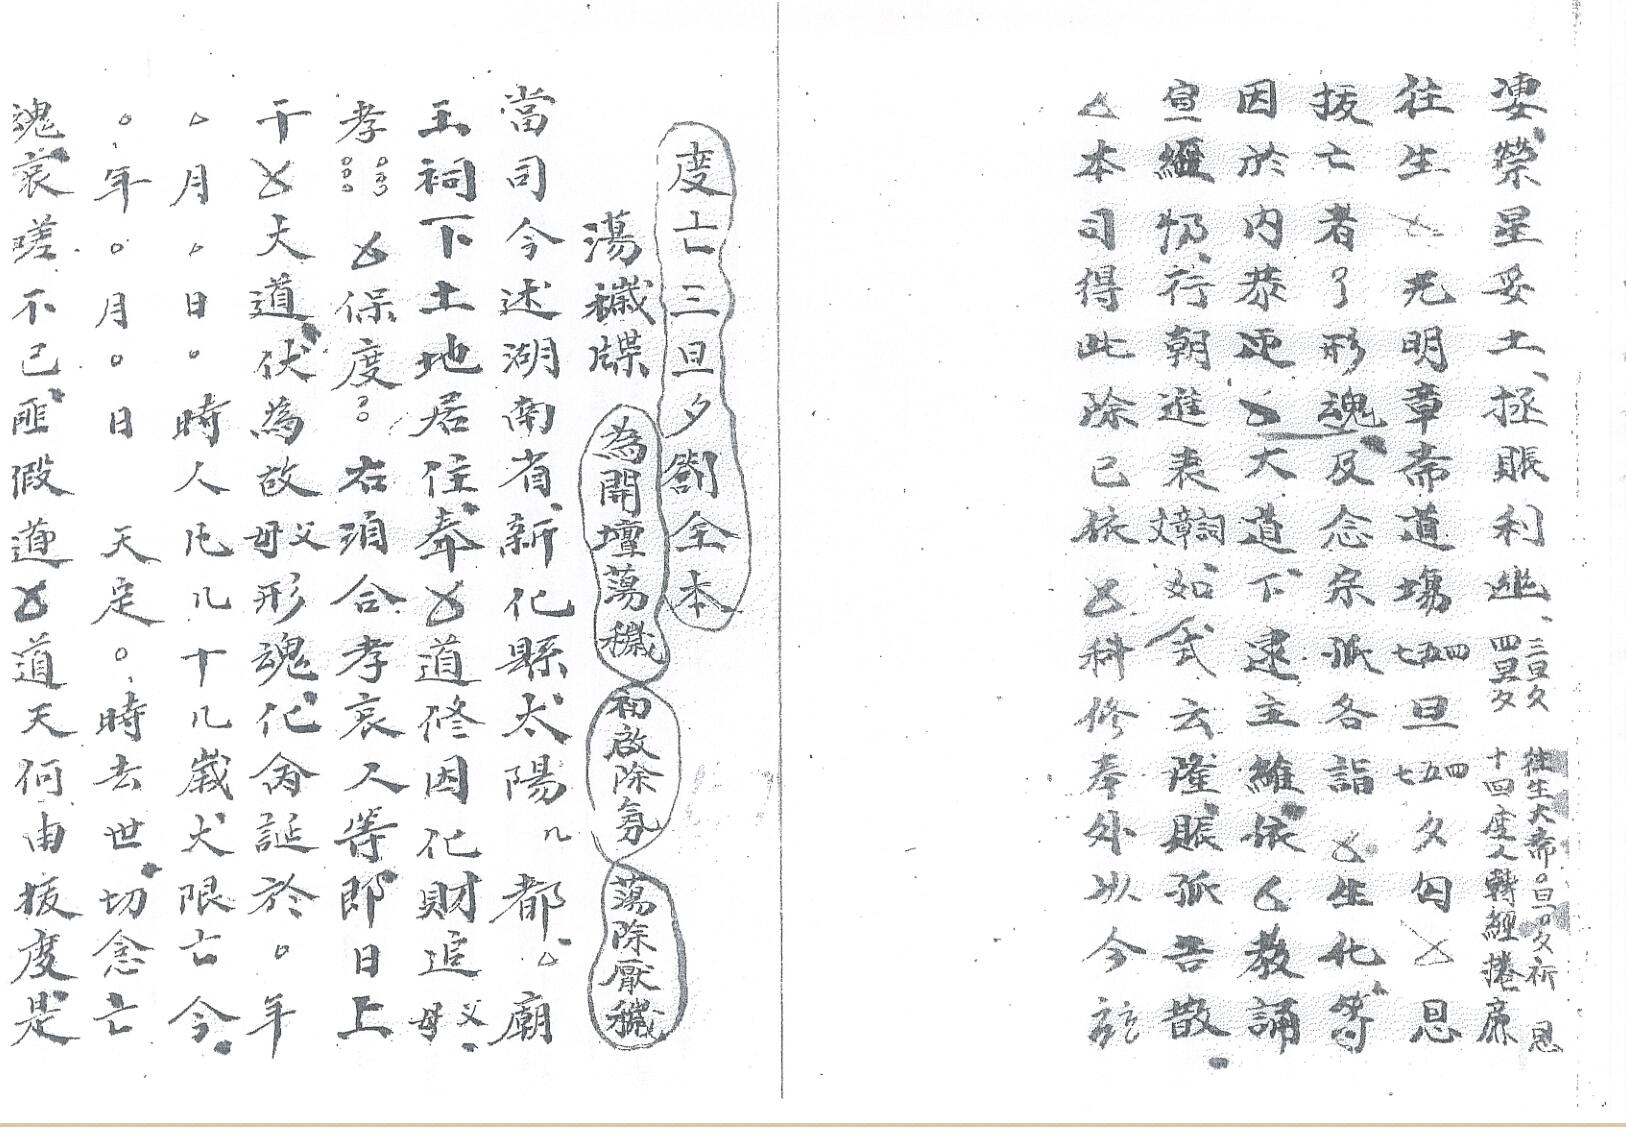 淒榮星妥土、拯賬利幽、三旦夕四旦夕 往生大斋。旦。夕祈恩十四度人轉經捲廉
往生㐅兄明章斋道場四五七旦四五七夕匃㐅恩
拔亡者了形魂及念宗派各詣㐅生化等
因於內恭迎㐅大道下逮主維依㐅教誦
宣經忏行朝進表詞章文如式云隆賑孤吾散
厶本司得此除已依㐅科修奉外以今玆
度亡三旦夕劄全本
蕩穢牒 為開壇蕩穢 初啟除氛 蕩除厭穢
當司今述湖南省新化縣太陽几都厶廟
王祠下土地居住奉㐅道修因化財追父母
孝。。。。。。㐅保度。。右湏合孝哀人等即日上
干㐅大道伏為故父母形魂化命誕於。年
△月。日。時人凡几十几歲大限亡今
。年。月。日 天定。時去世切念亡
魂哀嗟不已匪假道㐅道天何由拔度是